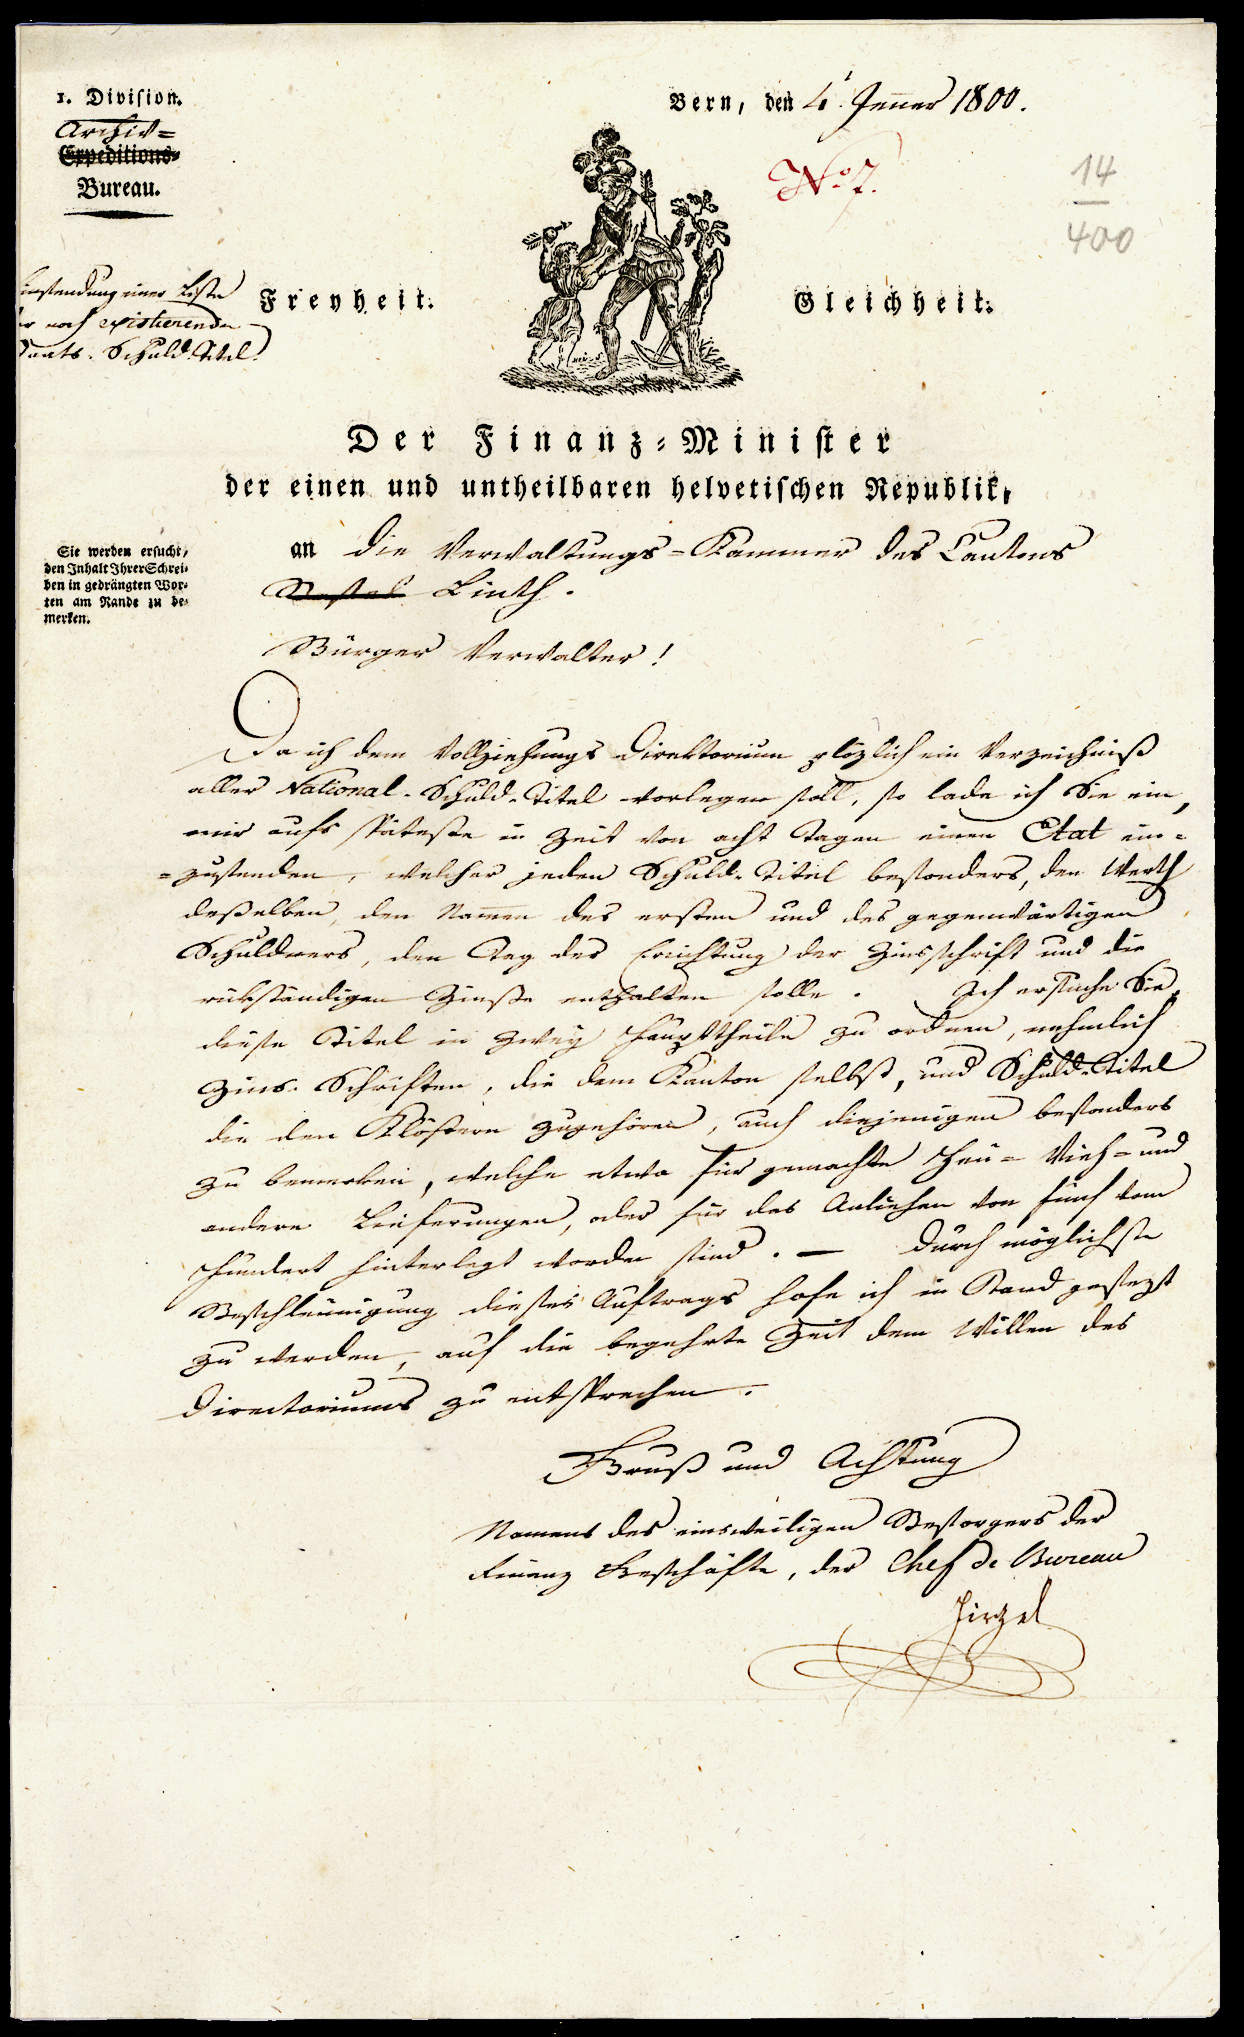 1. Division.
Archiv=
Expeditions=
Bureau.
Bern, den 4t. Jenner 1800.
No. 7.
14
400
Einsendung einer Liste
der noch existierenden
Staats-Schuld-Titel.
Freyheit.
Gleichheit.
Der Finanz-Minister
der einen und untheilbaren helvetischen Republik,
Sie werden ersucht,
den Inhalt Ihrer Schrei-
ben in gedrängten Wor-
ten am Rande zu be-
merken.
an die Verwaltungs-Kammer des Cantons
Linth.
Bürger Verwalter!
Da ich dem Vollziehungs Direktorium plözlich ein Verzeichniß
aller National-Schuld-Titel vorlegen soll, so lade ich Sie ein,
mir aufs späteste in Zeit von acht Tagen einen Etat ein=
=zusenden, welcher jeden Schuld-Titel besonders, den Werth
deßelben, den Namen des ersten und des gegenwärtigen
Schuldners, den Tag der Errichtung der Zinsschrift und die
rükständigen Zinße enthalten solle. Ich ersuche Sie,
diese Titel in zwey Haupttheile zu ordnen, nehmlich
Zins-Schriften, die dem Kanton selbst, und Schuld-Titel
die den Klöstern zugehören, auch diejenigen besonders
zu bemerken, welche etwa für gemachte Heu= Vieh= und
andere Lieferungen, oder für das Anliehen von fünf vom
Hundert hinterlegt worden sind. — Durch möglichste
Beschleunigung dieses Auftrags hofe ich in Stand gesezt
zu werden, auf die begehrte Zeit dem Willen des
Directoriums zu entsprechen.
Gruß und Achtung
Namens des einsweiligen Besorgers der
Finanz Geschäfte, der Chef de Bureau
Hirzel